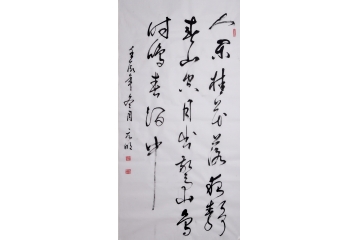 人闲桂花落夜静
春山空月出惊山鸟
时鸣春涧中
壬辰年冬月元明